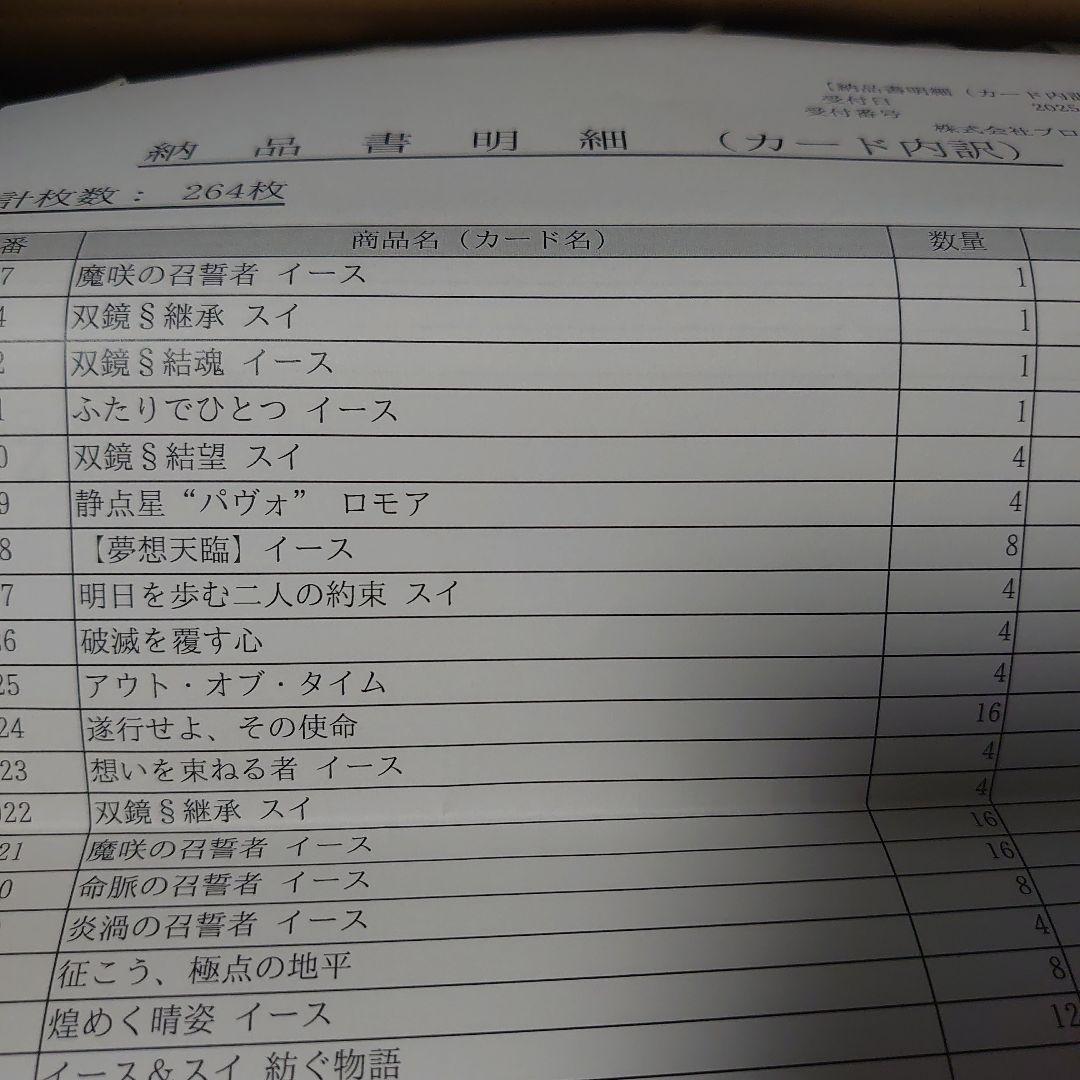 【納品書明細（カード内訳
受付日 2025
受付番号
株式会社ブロ
納品書明細（カード内訳）
計枚数： 264枚
番 商品名（カード名） 数量
7 魔咲の召誓者 イース 1
4 双鏡§継承 スイ 1
2 双鏡§結魂 イース 1
1 ふたりでひとつ イース 1
0 双鏡§結望 スイ 4
9 静点星“パヴォ” ロモア 4
8 【夢想天臨】イース 8
7 明日を歩む二人の約束 スイ 4
26 破滅を覆す心 4
25 アウト・オブ・タイム 4
24 遂行せよ、その使命 16
23 想いを束ねる者 イース 4
022 双鏡§継承 スイ 4
21 魔咲の召誓者 イース 16
0 命脈の召誓者 イース 16
炎渦の召誓者 イース 8
征こう、極点の地平 4
煌めく晴姿 イース 8
イース＆スイ 紡ぐ物語 12